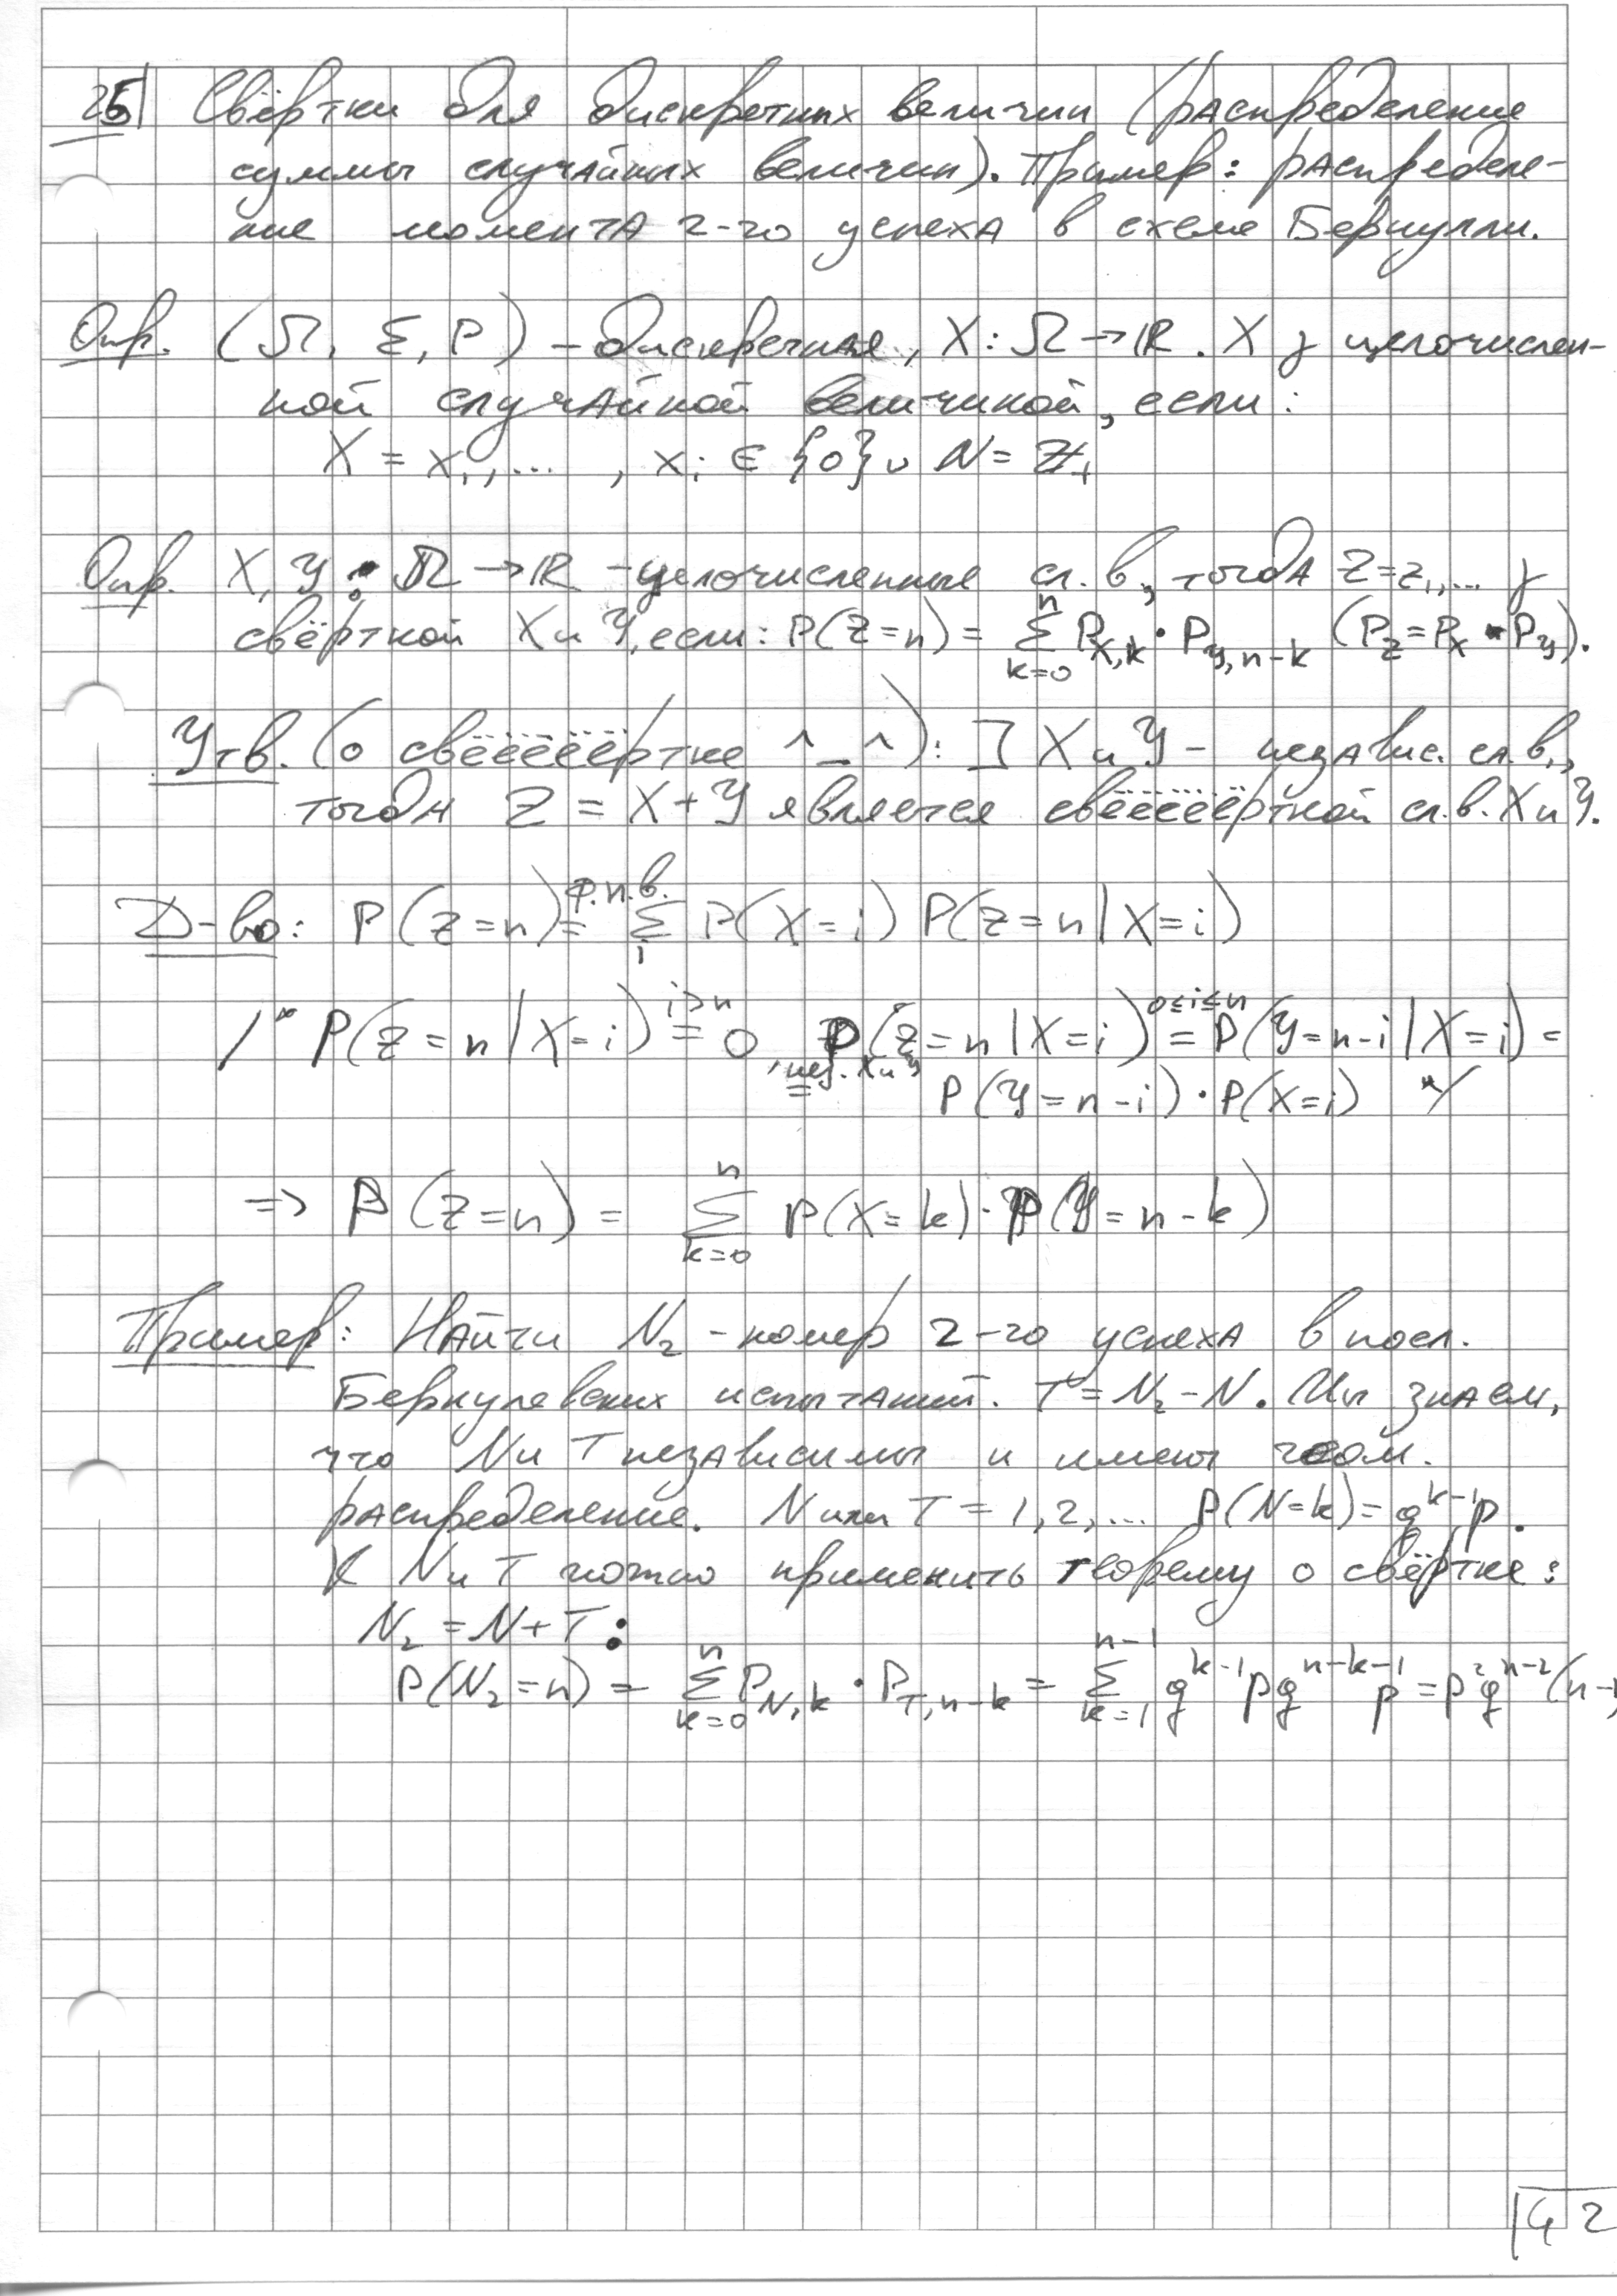 25| Свёртки для дискретных величин (распределение
суммы случайных величин). Пример: распределе-
ние момента 2-го успеха в схеме Бернулли.
Опр. (Ω, Σ, P) – дискретная, X: Ω → ℝ. X z целочислен-
ной случайной величиной, если:
X = x₁, ... , xᵢ ∈ {0} ∪ N = ℤ₊
Опр. X, Y : Ω → ℝ – целочисленные сл. в., тогда Z = z₁, ... z
свёрткой X и Y, если: P(Z=n) = ∑_{k=0}^{n} P_{X,k} · P_{Y,n-k} (P_Z = P_X * P_Y).
Утв. (о свёёёёёёртке ^_^): ] X и Y – независ. сл. в.,
тогда Z = X + Y является свёёёёёёрткой сл. в. X и Y.
Д-во: P(Z=n) =^{ф.п.в.} ∑_i P(X=i) P(Z=n | X=i)
/* P(Z=n | X=i) =^{i>n} 0, P(Z=n | X=i) =^{0≤i≤n} P(Y=n-i | X=i) =
=^{нез. X и Y} P(Y=n-i) · P(X=i) */
=> P(Z=n) = ∑_{k=0}^{n} P(X=k) · P(Y=n-k)
Пример: Найти N₂ – номер 2-го успеха в посл.
Бернулевских испытаний. T = N₂ - N. Мы знаем,
что N и T независимы и имеют геом.
распределение. N или T = 1, 2, ... P(N=k) = q^{k-1}p.
К N и T можно применить теорему о свёртке:
N₂ = N + T :
P(N₂=n) = ∑_{k=0}^{n} P_{N,k} · P_{T,n-k} = ∑_{k=1}^{n-1} q^{k-1} p q^{n-k-1} p = p² q^{n-2} (n-1)
|42